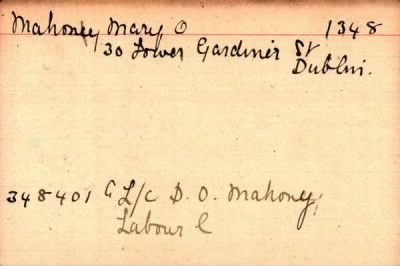 Mahoney Mary O 1348
30 Lower Gardiner St
Dublin.
348401 L/c D. O. Mahoney,
Labour C